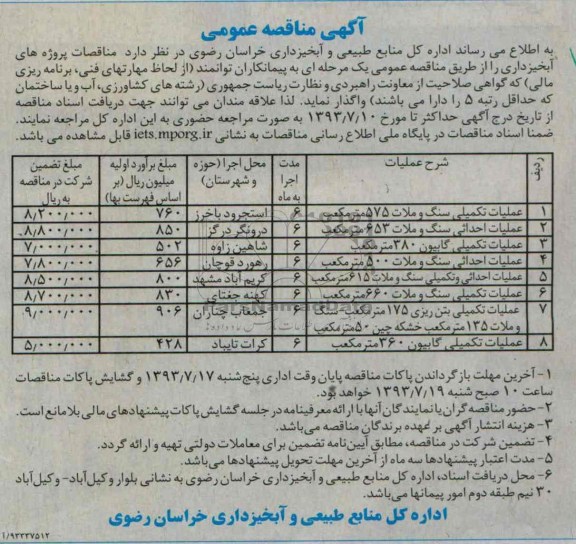 آگهی مناقصه عمومی
به اطلاع می رساند اداره کل منابع طبیعی و آبخیزداری خراسان رضوی در نظر دارد مناقصات پروژه های
آبخیزداری را از طریق مناقصه عمومی یک مرحله ای به پیمانکاران توانمند (از لحاظ مهارتهای فنی، برنامه ریزی
مالی) که گواهی صلاحیت از معاونت راهبردی و نظارت ریاست جمهوری (رشته های کشاورزی، آب و یا ساختمان
که حداقل رتبه ۵ را دارا می باشند) واگذار نماید. لذا علاقه مندان می توانند جهت دریافت اسناد مناقصه
از تاریخ درج آگهی حداکثر تا مورخ ۱۳۹۳/۷/۱۰ به صورت مراجعه حضوری به این اداره کل مراجعه نمایند.
ضمنا اسناد مناقصات در پایگاه ملی اطلاع رسانی مناقصات به نشانی iets.mporg.ir قابل مشاهده می باشد.
ردیف | شرح عملیات | مدت اجرا به ماه | محل اجرا (حوزه و شهرستان) | مبلغ برآورد اولیه میلیون ریال (بر اساس فهرست بها) | مبلغ تضمین شرکت در مناقصه به ریال
۱ | عملیات تکمیلی سنگ و ملات ۵۷۵ مترمکعب | ۶ | استجرود باخرز | ۷۶۰ | ۸/۲۰۰/۰۰۰
۲ | عملیات احداثی سنگ و ملات ۶۵۳ مترمکعب | ۶ | درونگر درگز | ۸۵۰ | ۸/۸۰۰/۰۰۰
۳ | عملیات تکمیلی گابیون ۳۸۰ مترمکعب | ۶ | شاهین زاوه | ۵۰۲ | ۷/۰۰۰/۰۰۰
۴ | عملیات احداثی سنگ و ملات ۵۰۰ مترمکعب | ۶ | رهورد قوچان | ۶۵۶ | ۷/۸۰۰/۰۰۰
۵ | عملیات احداثی وتکمیلی سنگ و ملات ۶۱۵ مترمکعب | ۶ | کریم آباد مشهد | ۸۰۰ | ۸/۵۰۰/۰۰۰
۶ | عملیات تکمیلی سنگ و ملات ۶۶۰ مترمکعب | ۶ | کهنه جغتای | ۸۳۰ | ۸/۷۰۰/۰۰۰
۷ | عملیات تکمیلی بتن ریزی ۱۷۵ مترمکعب سنگ | ۶ | جمعاب چناران | ۹۰۶ | ۹/۰۰۰/۰۰۰
و ملات ۱۳۵ مترمکعب خشکه چین ۵۰ مترمکعب
۸ | عملیات تکمیلی گابیون ۳۶۰ مترمکعب | ۶ | کرات تایباد | ۴۲۸ | ۵/۰۰۰/۰۰۰
۱- آخرین مهلت بازگرداندن پاکات مناقصه پایان وقت اداری پنج‌شنبه ۱۳۹۳/۷/۱۷ و گشایش پاکات مناقصات
ساعت ۱۰ صبح شنبه ۱۳۹۳/۷/۱۹ خواهد بود.
۲- حضور مناقصه گران یا نمایندگان آنها با ارائه معرفینامه در جلسه گشایش پاکات پیشنهادهای مالی بلامانع است.
۳- هزینه انتشار آگهی بر عهده برندگان مناقصه می‌باشد.
۴- تضمین شرکت در مناقصه، مطابق آیین‌نامه تضمین برای معاملات دولتی تهیه و ارائه گردد.
۵- مدت اعتبار پیشنهادها سه ماه از آخرین مهلت تحویل پیشنهادها می‌باشد.
۶- محل دریافت اسناد، اداره کل منابع طبیعی و آبخیزداری خراسان رضوی به نشانی بلوار وکیل‌آباد- وکیل‌آباد
۳۰ نیم طبقه دوم امور پیمانها می‌باشد.
اداره کل منابع طبیعی و آبخیزداری خراسان رضوی
۱/۹۳۳۳۷۵۱۲